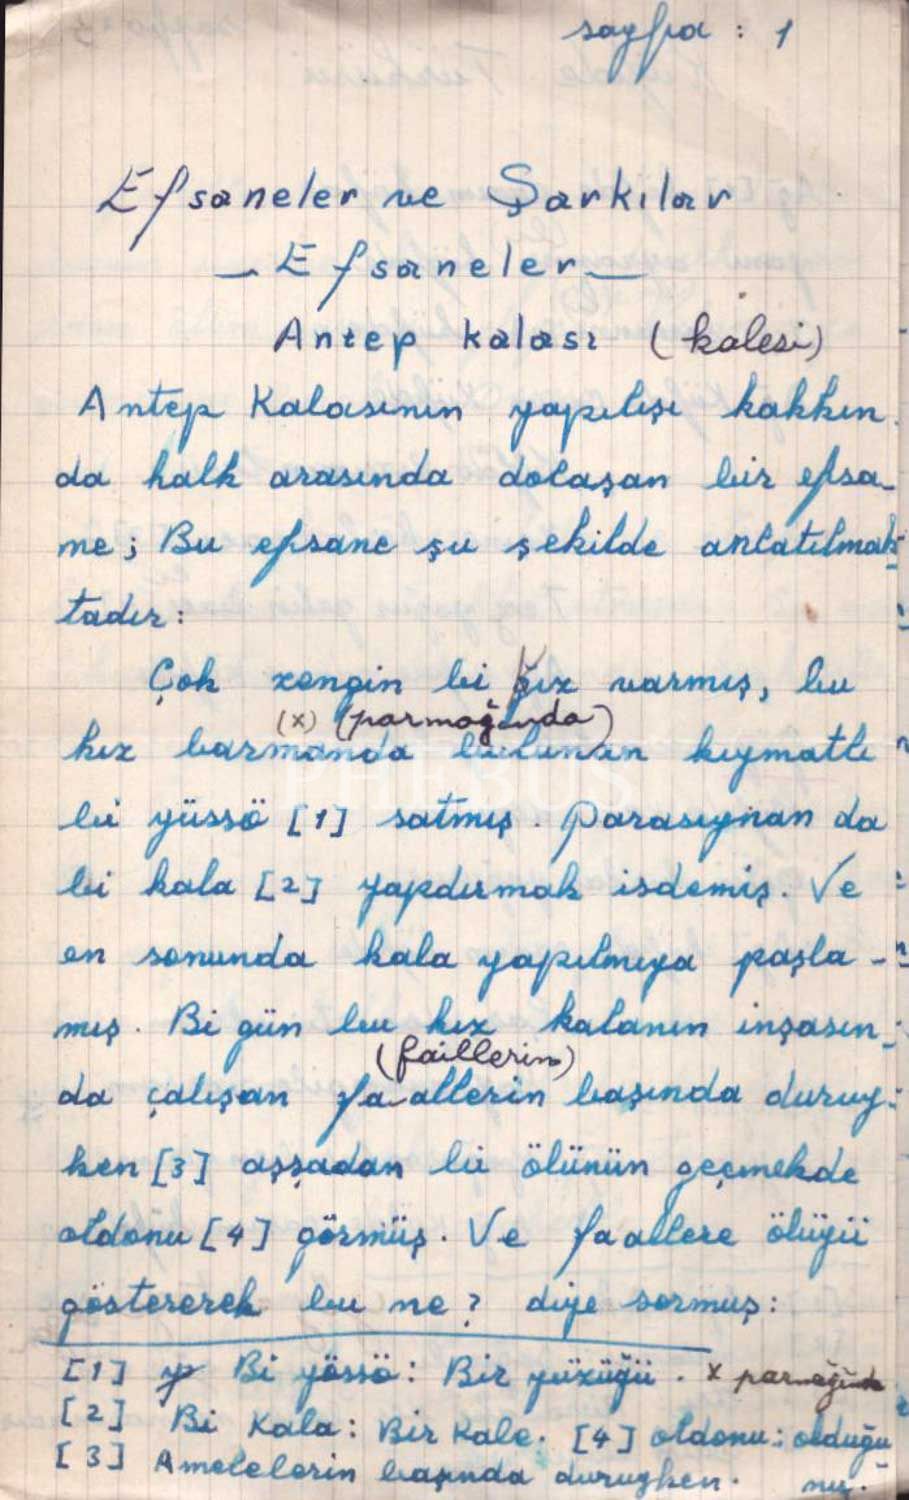 sayfa : 1
Efsaneler ve Şarkılar
— Efsaneler —
Antep kalası (kalesi)
Antep Kalasının yapılışı hakkın
da halk arasında dolaşan bir efsa-
ne; Bu efsane şu şekilde anlatılmak
tadır:
Çok zengin bi kız varmış, bu
(x) (parmağında)
kız barmanda bulunan kıymatlı
bi yüssö [1] satmış. Parasıynan da
bi kala [2] yapdırmak isdemiş. Ve
en sonunda kala yapılmıya paşla-
mış. Bi gün bu kız kalanın inşasın-
(faillerin)
da çalışan faallerin başında duruy-
ken [3] aşşadan bi ölünün geçmekde
oldonu [4] görmüş. Ve faallere ölüyü
göstererek bu ne? diye sormuş:
[1] Bi yössö: Bir yüzüğü. x parmağında
[2] Bi Kala: Bir Kale. [4] oldonu: olduğu
[3] Amelelerin başında duruyken. nu.
PHEBUS